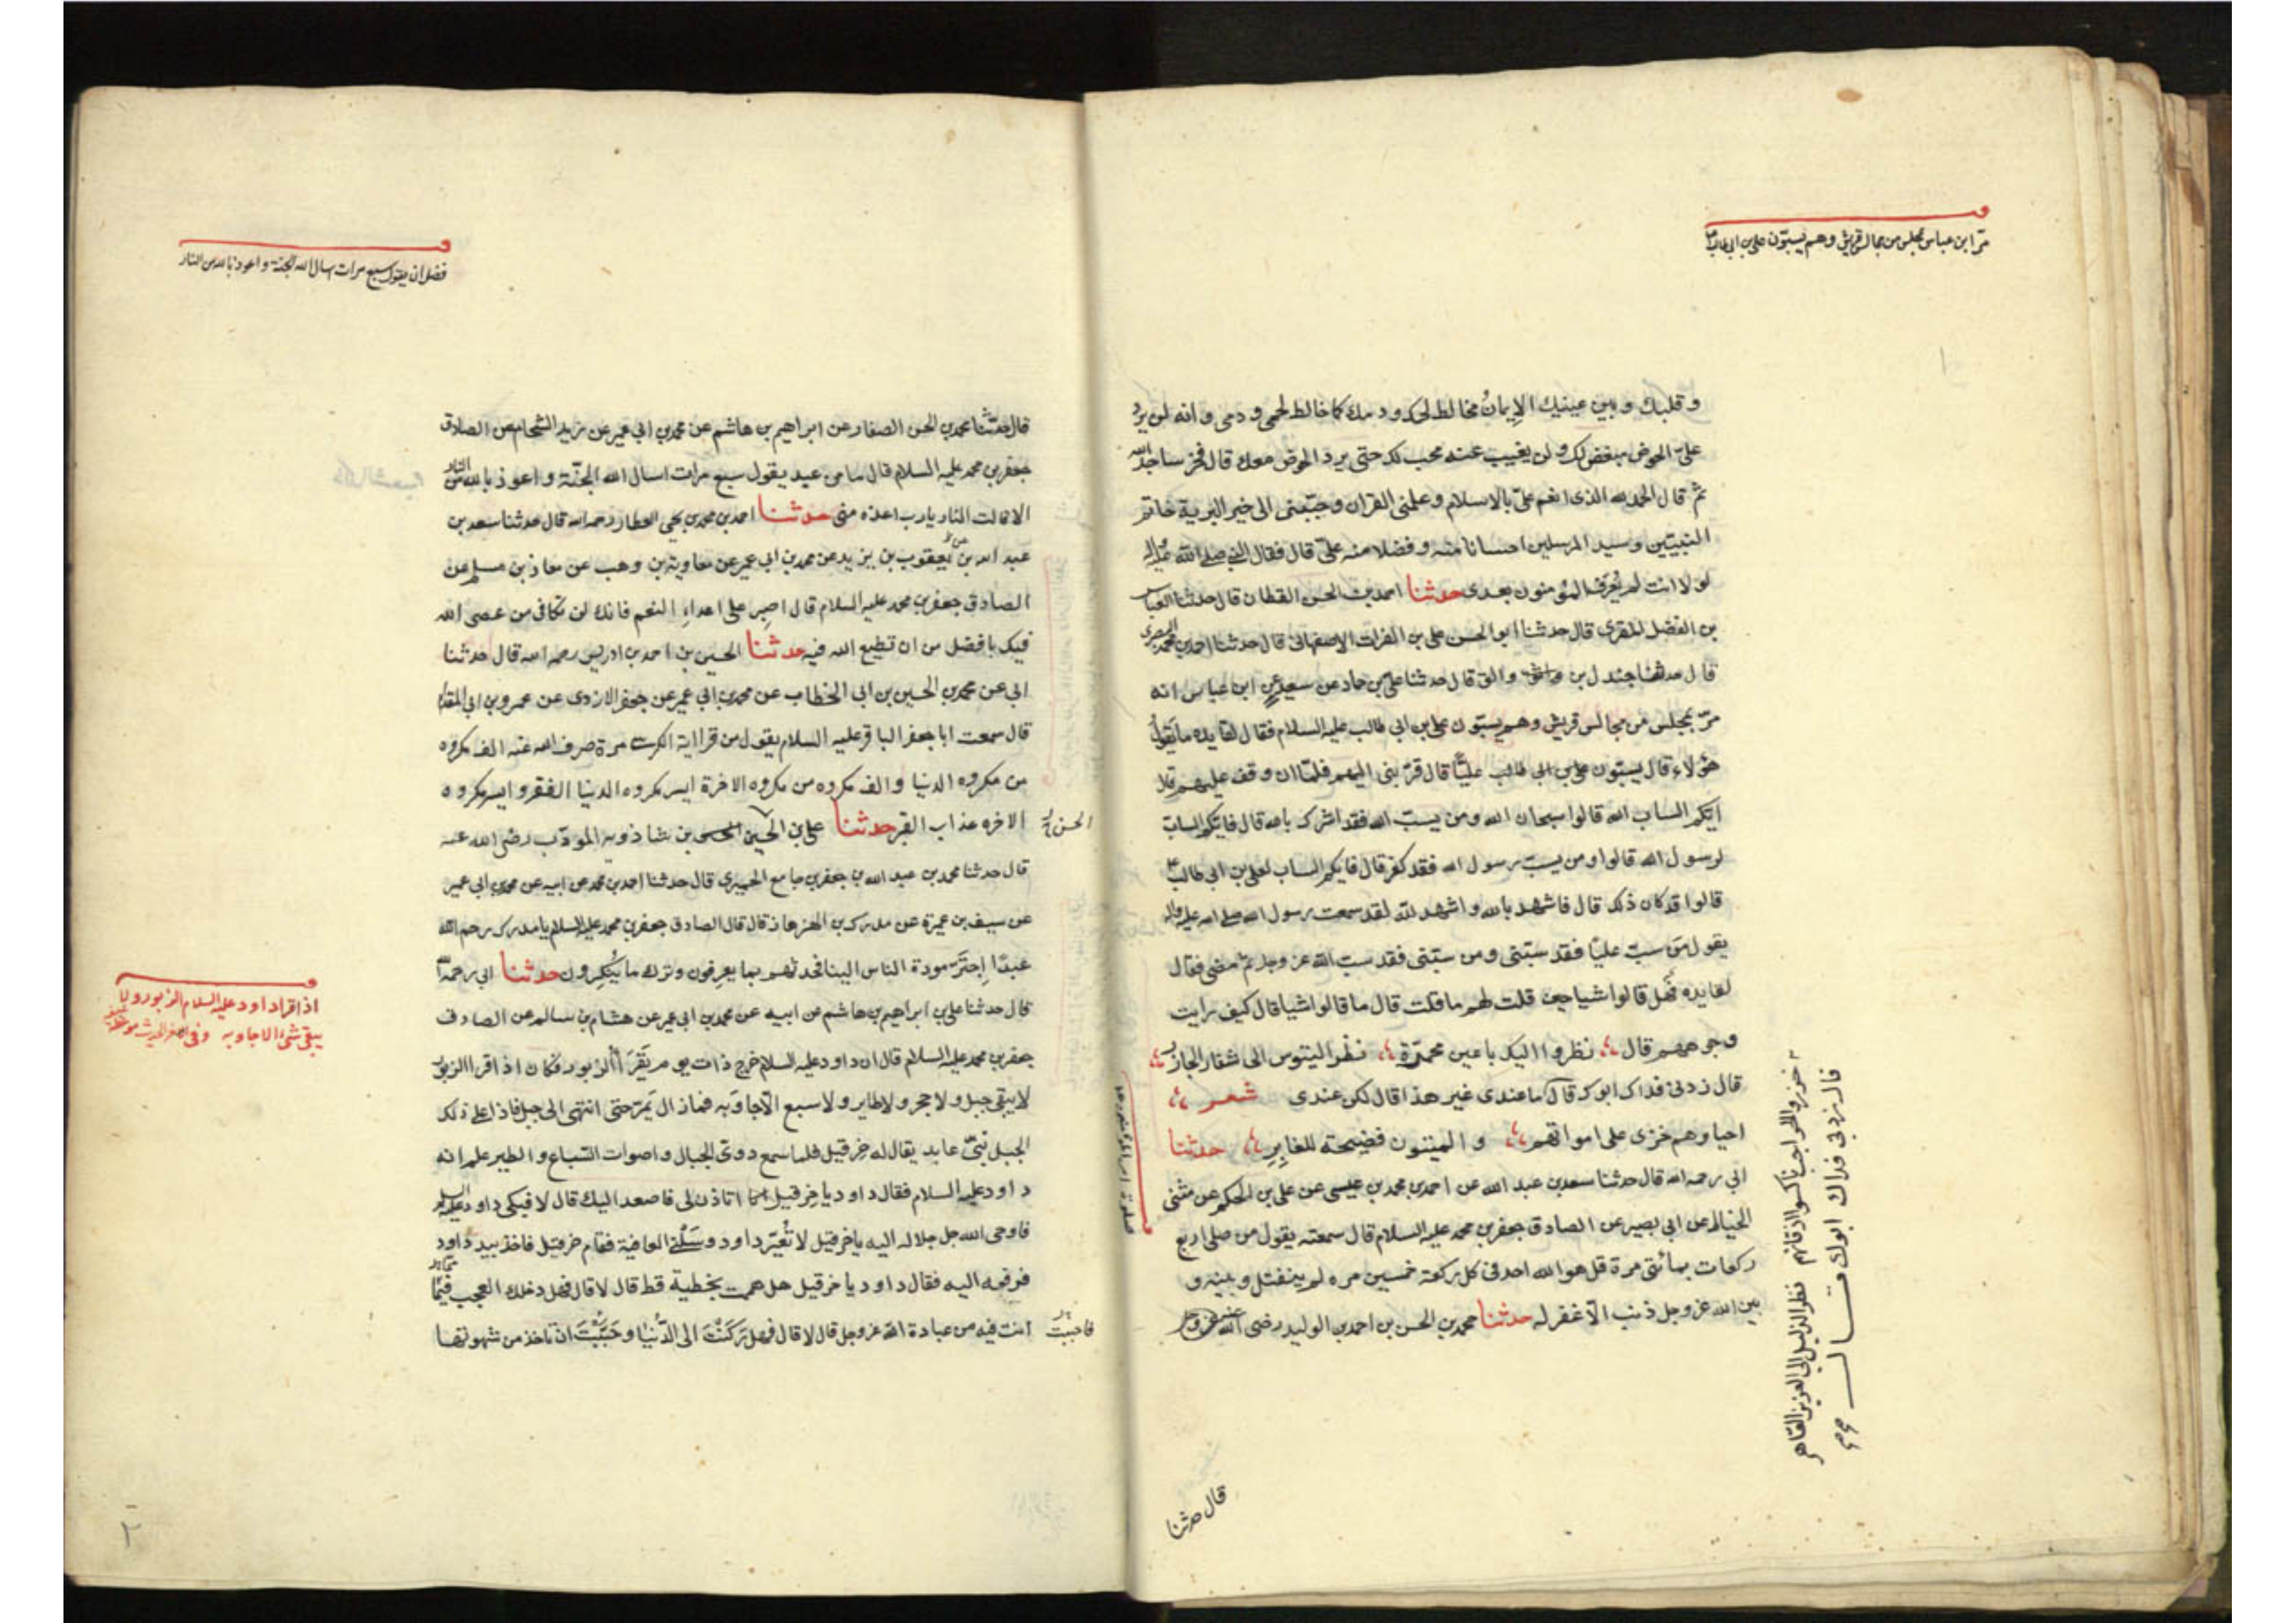 مرّ ابن عباس بمجلس من مجالس قريش وهم يسبّون علي بن ابي طالب
وقلبك وبين عينيك الإيمانُ مخالط لحمك ودمك كما خالط لحمي ودمى وانه لن يرد
علىّ الحوض مبغض لك ولن يغيب عنه محب لك حتى يرد الحوض معك قال فخر ساجدا لله
ثم قال الحمد لله الذى انعم علىّ بالاسلام وعلمنى القران وحبّبنى الى خير البرية خاتم
النبيّين وسيد المرسلين احسانا منه وفضلا منه علىّ قال فقال النبي صلى الله عليه واله
لولا انت لم يُعرَف المؤمنون بعدى حدثنا احمد بن الحسن القطان قال حدثنا العباس
بن الفضل المقرى قال حدثنا ابو الحسن على بن الفرات الاصفهانى قال حدثنا احمد بن محمد البصرى
قال حدثنا جندل بن والق قال حدثنا علي بن حماد عن سعيد عن ابن عباس انه
مرّ بمجلس من مجالس قريش وهم يسبّون على بن ابي طالب عليه السلام فقال لقايده ما يقول
هؤلاء قال يسبّون على بن ابى طالب عليّا قال قرّبنى اليهم فلمّا ان وقف عليهم قال
ايّكم الساب الله قالوا سبحان الله ومن يسبّ الله فقد اشرك بالله قال فايّكم السابّ
لرسول الله قالوا ومن يسبّ رسول الله فقد كفر قال فايكم الساب لعلى بن ابى طالب
قالوا قد كان ذلك قال فاشهد بالله واشهد لله لقد سمعت رسول الله صلى الله عليه واله
يقول مَن سبّ عليّا فقد سبّنى ومن سبّنى فقد سبّ الله عز وجل ثم مضى فقال
لقايده فهل قالوا شيا حين قلت لهم ما قلت قال ما قالوا شيا قال كيف رايت
وجوههم قال نظروا اليك باعين محمرّة نظر التيوس الى شفار الجازر
قال زدنى فداك ابوك قال ما عندى غير هذا قال لكن عندى شعر
احياوهم خزى على امواتهم والميتون فضيحته للغابِرِ حدثنا
ابي رحمه الله قال حدثنا سعد بن عبد الله عن احمد بن محمد بن عيسى عن على بن الحكم عن مثنى
الحناط عن ابي بصير عن الصادق جعفر بن محمد عليه السلام قال سمعته يقول من صلى اربع
ركعات بمأتى مرة قل هو الله احد فى كل ركعة خمسين مره لم ينفتل وبينه و
بين الله عز وجل ذنب الا غفر له حدثنا محمد بن الحسن بن احمد بن الوليد رضى الله عنه
خزر الحواجب ناكسوا اذقانهم نظر الذليل الى العزيز القاهر
قال زدنى فداك ابوك قال
قال حدثنا
فضل ان يقول سبع مرات اسال الله الجنة واعوذ بالله من النار
قال حدثنا محمد بن الحسن الصفار عن ابراهيم بن هاشم عن محمد بن ابي عمير عن زيد الشحام عن الصادق
جعفر بن محمد عليه السلام قال ما من عبد يقول سبع مرات اسال الله الجنّة واعوذ بالله من النار
الا قالت النار يا رب اعذه منى حدثنا احمد بن محمد بن يحيى العطار رحمه الله قال حدثنا سعد بن
عبد الله عن يعقوب بن يزيد عن محمد بن ابي عمير عن معاوية بن وهب عن معاذ بن مسلم عن
الصادق جعفر بن محمد عليه السلام قال اصبِر على اعداءِ النعم فانك لن تكافى من عصى الله
فيك بافضل من ان تطيع الله فيه حدثنا الحسين بن احمد بن ادريس رحمه الله قال حدثنا
ابى عن محمد بن الحسين بن ابى الخطاب عن محمد بن ابي عمير عن جعفر الازدى عن عمرو بن ابي المقدام
قال سمعت ابا جعفر الباقر عليه السلام يقول من قرا اية الكرسي مرة صرف الله عنه الف مكروه
من مكروه الدنيا والف مكروه من مكروه الاخرة ايسر مكروه الدنيا الفقر وايسر مكروه
الاخره عذاب القبر حدثنا على بن الحسين بن شاذويه المودّب رضى الله عنه
الحسن
قال حدثنا محمد بن عبد الله بن جعفر بن جامع الحميرى قال حدثنا احمد بن محمد عن ابيه عن محمد بن ابي عمير
عن سيف بن عميرة عن مدرك بن الهزهاز قال قال الصادق جعفر بن محمد عليه السلام يا مدرك رحم الله
عبدًا اجترّ مودة الناس الينا فحدثهم بما يعرفون وترك ما ينكرون حدثنا ابي رحمه الله
قال حدثنا على بن ابراهيم بن هاشم عن ابيه عن محمد بن ابى عمير عن هشام بن سالم عن الصادق
جعفر بن محمد عليه السلام قال ان داود عليه السلام خرج ذات يوم يَقرَأ الزبور وكان اذا قرا الزبور
لا يبقى جبل ولا حجر ولا طاير ولا سبع الا جاوبه فما زال يمرّ حتى انتهى الى جبل فاذا على ذلك
الجبل نبىّ عابد يقال له حزقيل فلما سمع دوى الجبال واصوات السّباع والطير علم انه
داود عليه السلام فقال داود يا حزقيل اتاذن لى فاصعد اليك قال لا فبكى داود عليه السلم
فاوحى الله جل جلاله اليه يا حزقيل لا تُعيّر داود وسَلْنى العافية فقام حزقيل فاخذ بيد داود
فرفعه اليه فقال داود يا حزقيل هل هممت بخطيئة قط قال لا قال فهل دخلك العجب فيما
انت فيه من عبادة الله عز وجل قال لا قال فهل رَكَنْتَ الى الدّنيا وحَبَّبْتَ ان تاخذ من شهوتها
فاحببت
اذا قرا داود عليه السلام الزبور ولا
يبقى شئ الا جاوبه
٢